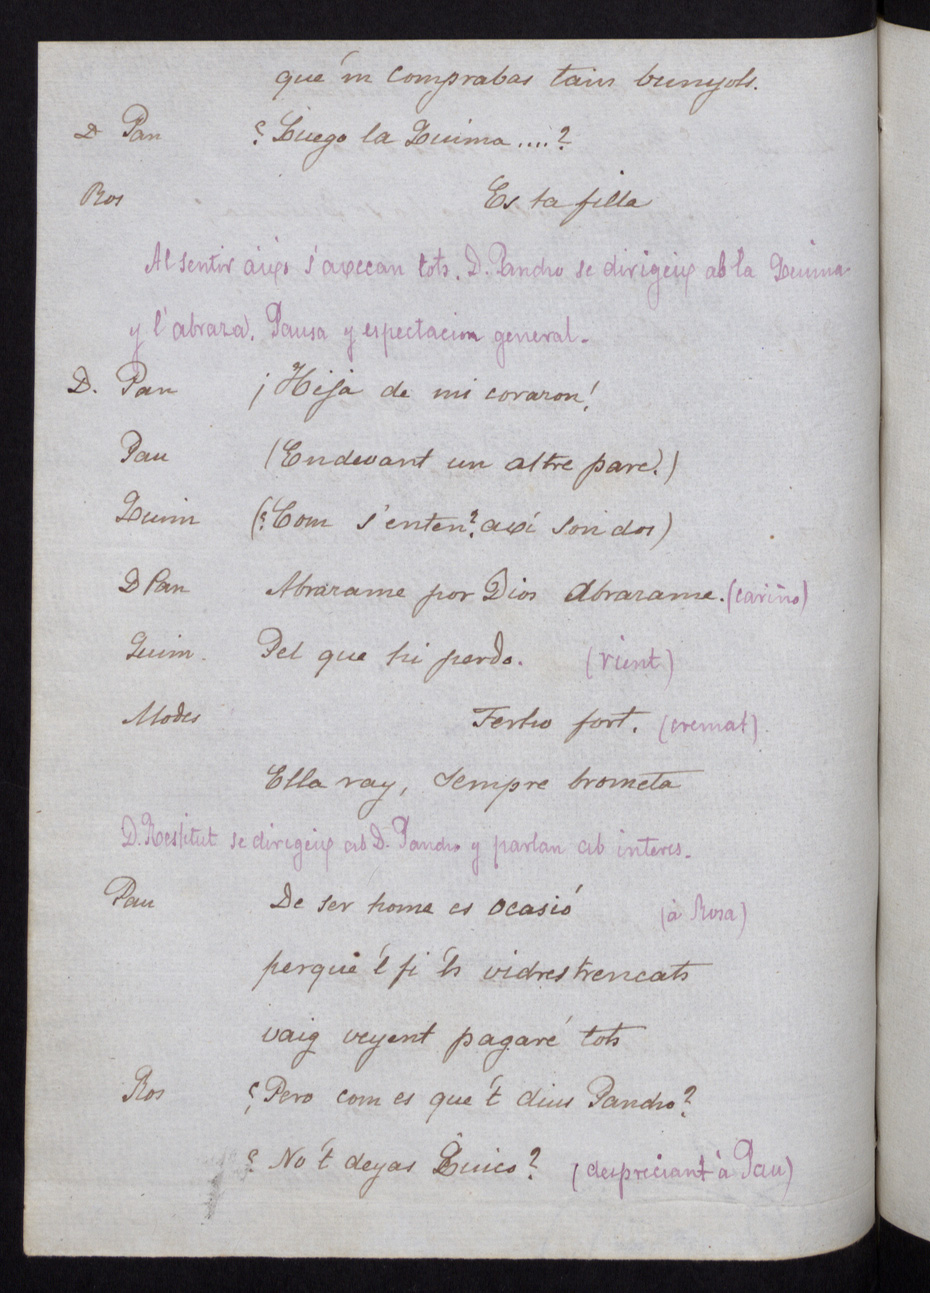 que ´m comprabas tans bunyols.
D Pan ¿Luego la Quima ....?
Ros Es ta filla
Al sentir aixó s'axecan tots. D. Pancho se dirigeix ab la Quima
y l'abraza. Pausa y espectacion general.
D. Pan ¡Hija de mi corazon!
Pau (Endevant un altre pare.)
Quim (¿Com s'enten? axí son dos)
D Pan Abrazame por Dios abrazame. (cariño)
Quim. Pel que hi perdo. (rient)
Modes Ferho fort. (cremat)
Ella ray, sempre brometa
D. Restitut se dirigeix ab D. Pancho y parlan ab interes.
Pau De ser home es ocasió (à Rosa)
perque 'l fi 'ls vidres trencats
vaig veyent pagaré tots
Ros ¿Pero com es que 't dius Pancho?
¿No 't deyas Quico? (despreciant à Pau)